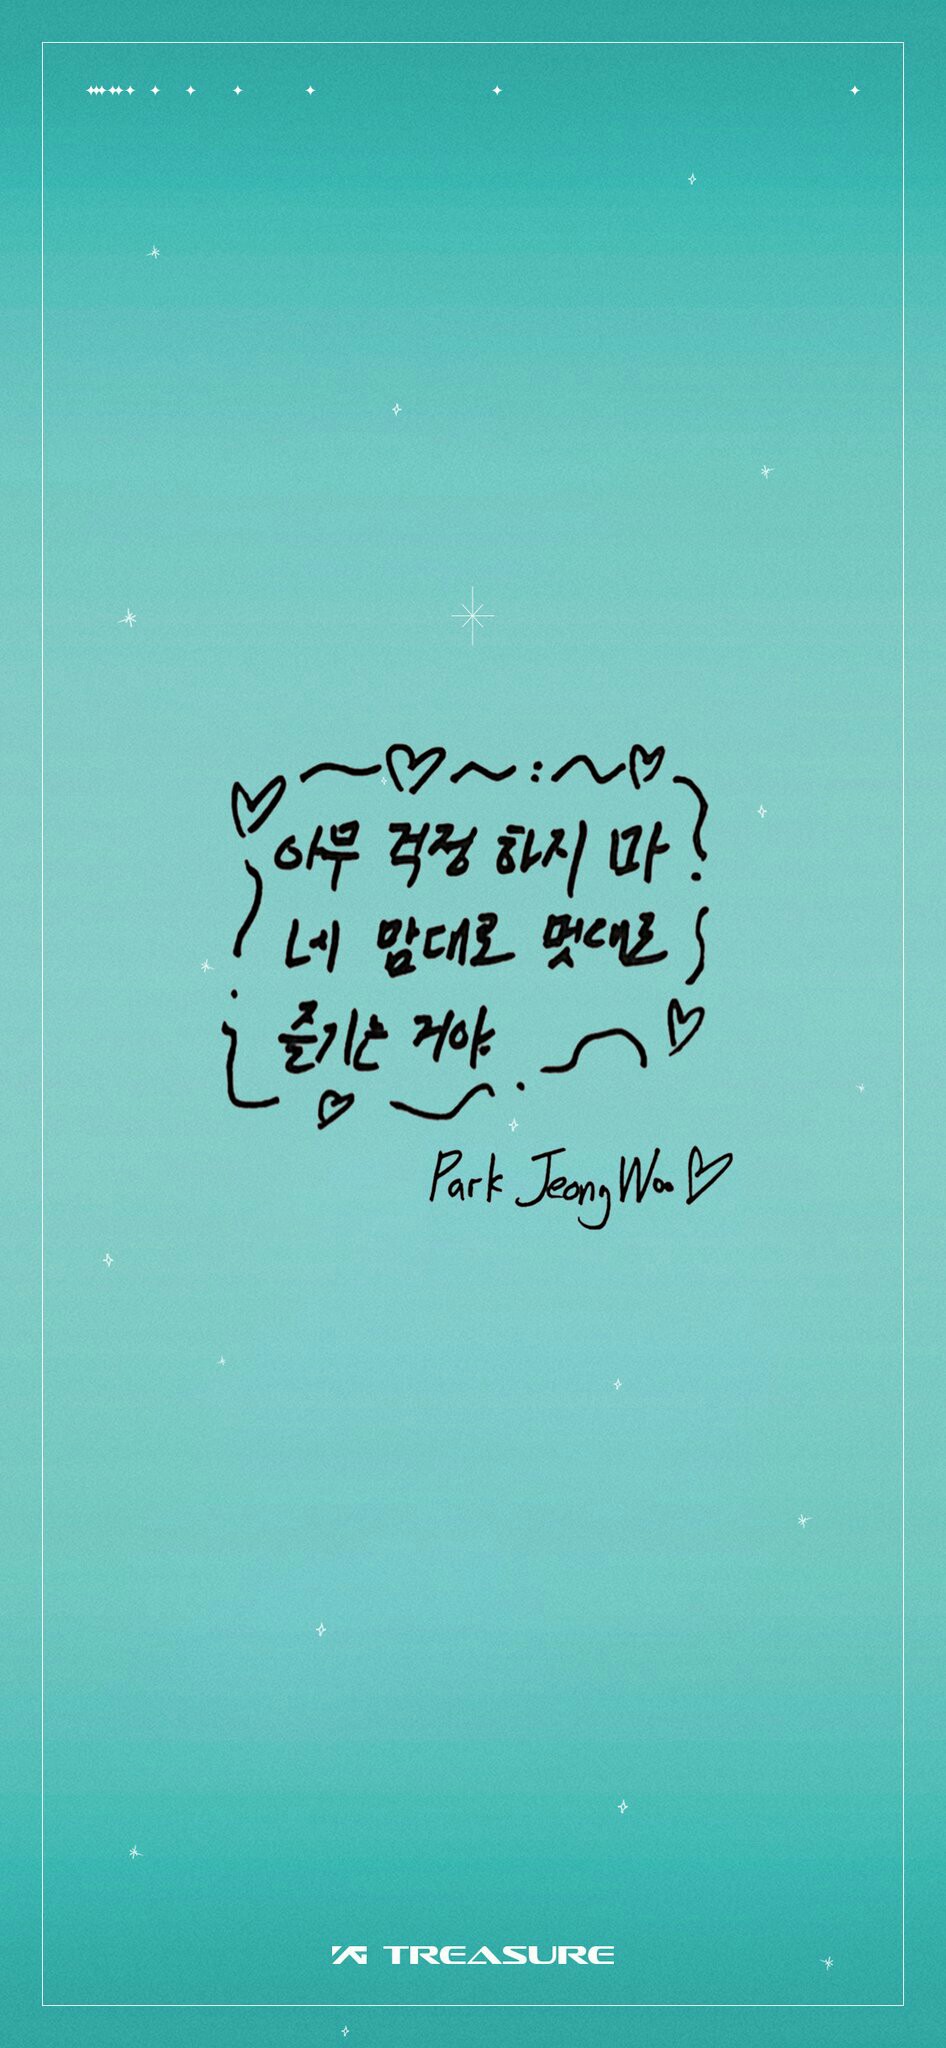 아무 걱정 하지 마
네 맘대로 멋대로
즐기는 거야
Park JeongWoo
YG TREASURE